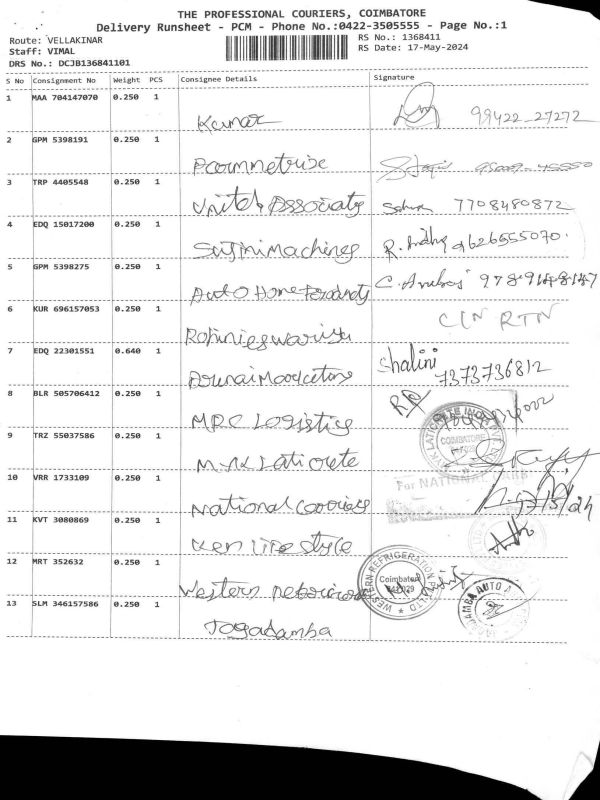 THE PROFESSIONAL COURIERS, COIMBATORE
Delivery Runsheet - PCM - Phone No.:0422-3505555 - Page No.:1
Route: VELLAKINAR
RS No.: 1368411
Staff: VIMAL
RS Date: 17-May-2024
DRS No.: DCJB136841101
S No Consignment No Weight PCS Consignee Details Signature
1 MAA 704147070 0.250 1 Kumar 99422-27272
2 GPM 5398191 0.250 1
3 TRP 4405548 0.250 1 United Associats 7708480872
4 EDQ 15017200 0.250 1 Sujini Machines 9626555070.
5 GPM 5398275 0.250 1 Auto Home Products
6 KUR 696157053 0.250 1 C/N RTN
7 EDQ 22301551 0.640 1 Shalini 7373736812
8 BLR 505706412 0.250 1 MRC Logistics
9 TRZ 55037586 0.250 1 COIMBATORE
10 VRR 1733109 0.250 1 National Couriers For NATIONAL 17/5/24
11 KVT 3080869 0.250 1 Ken Life Style
12 MRT 352632 0.250 1 Western WESTERN REFRIGERATION Coimbatore
13 SLM 346157586 0.250 1 Jagadamba AUTO